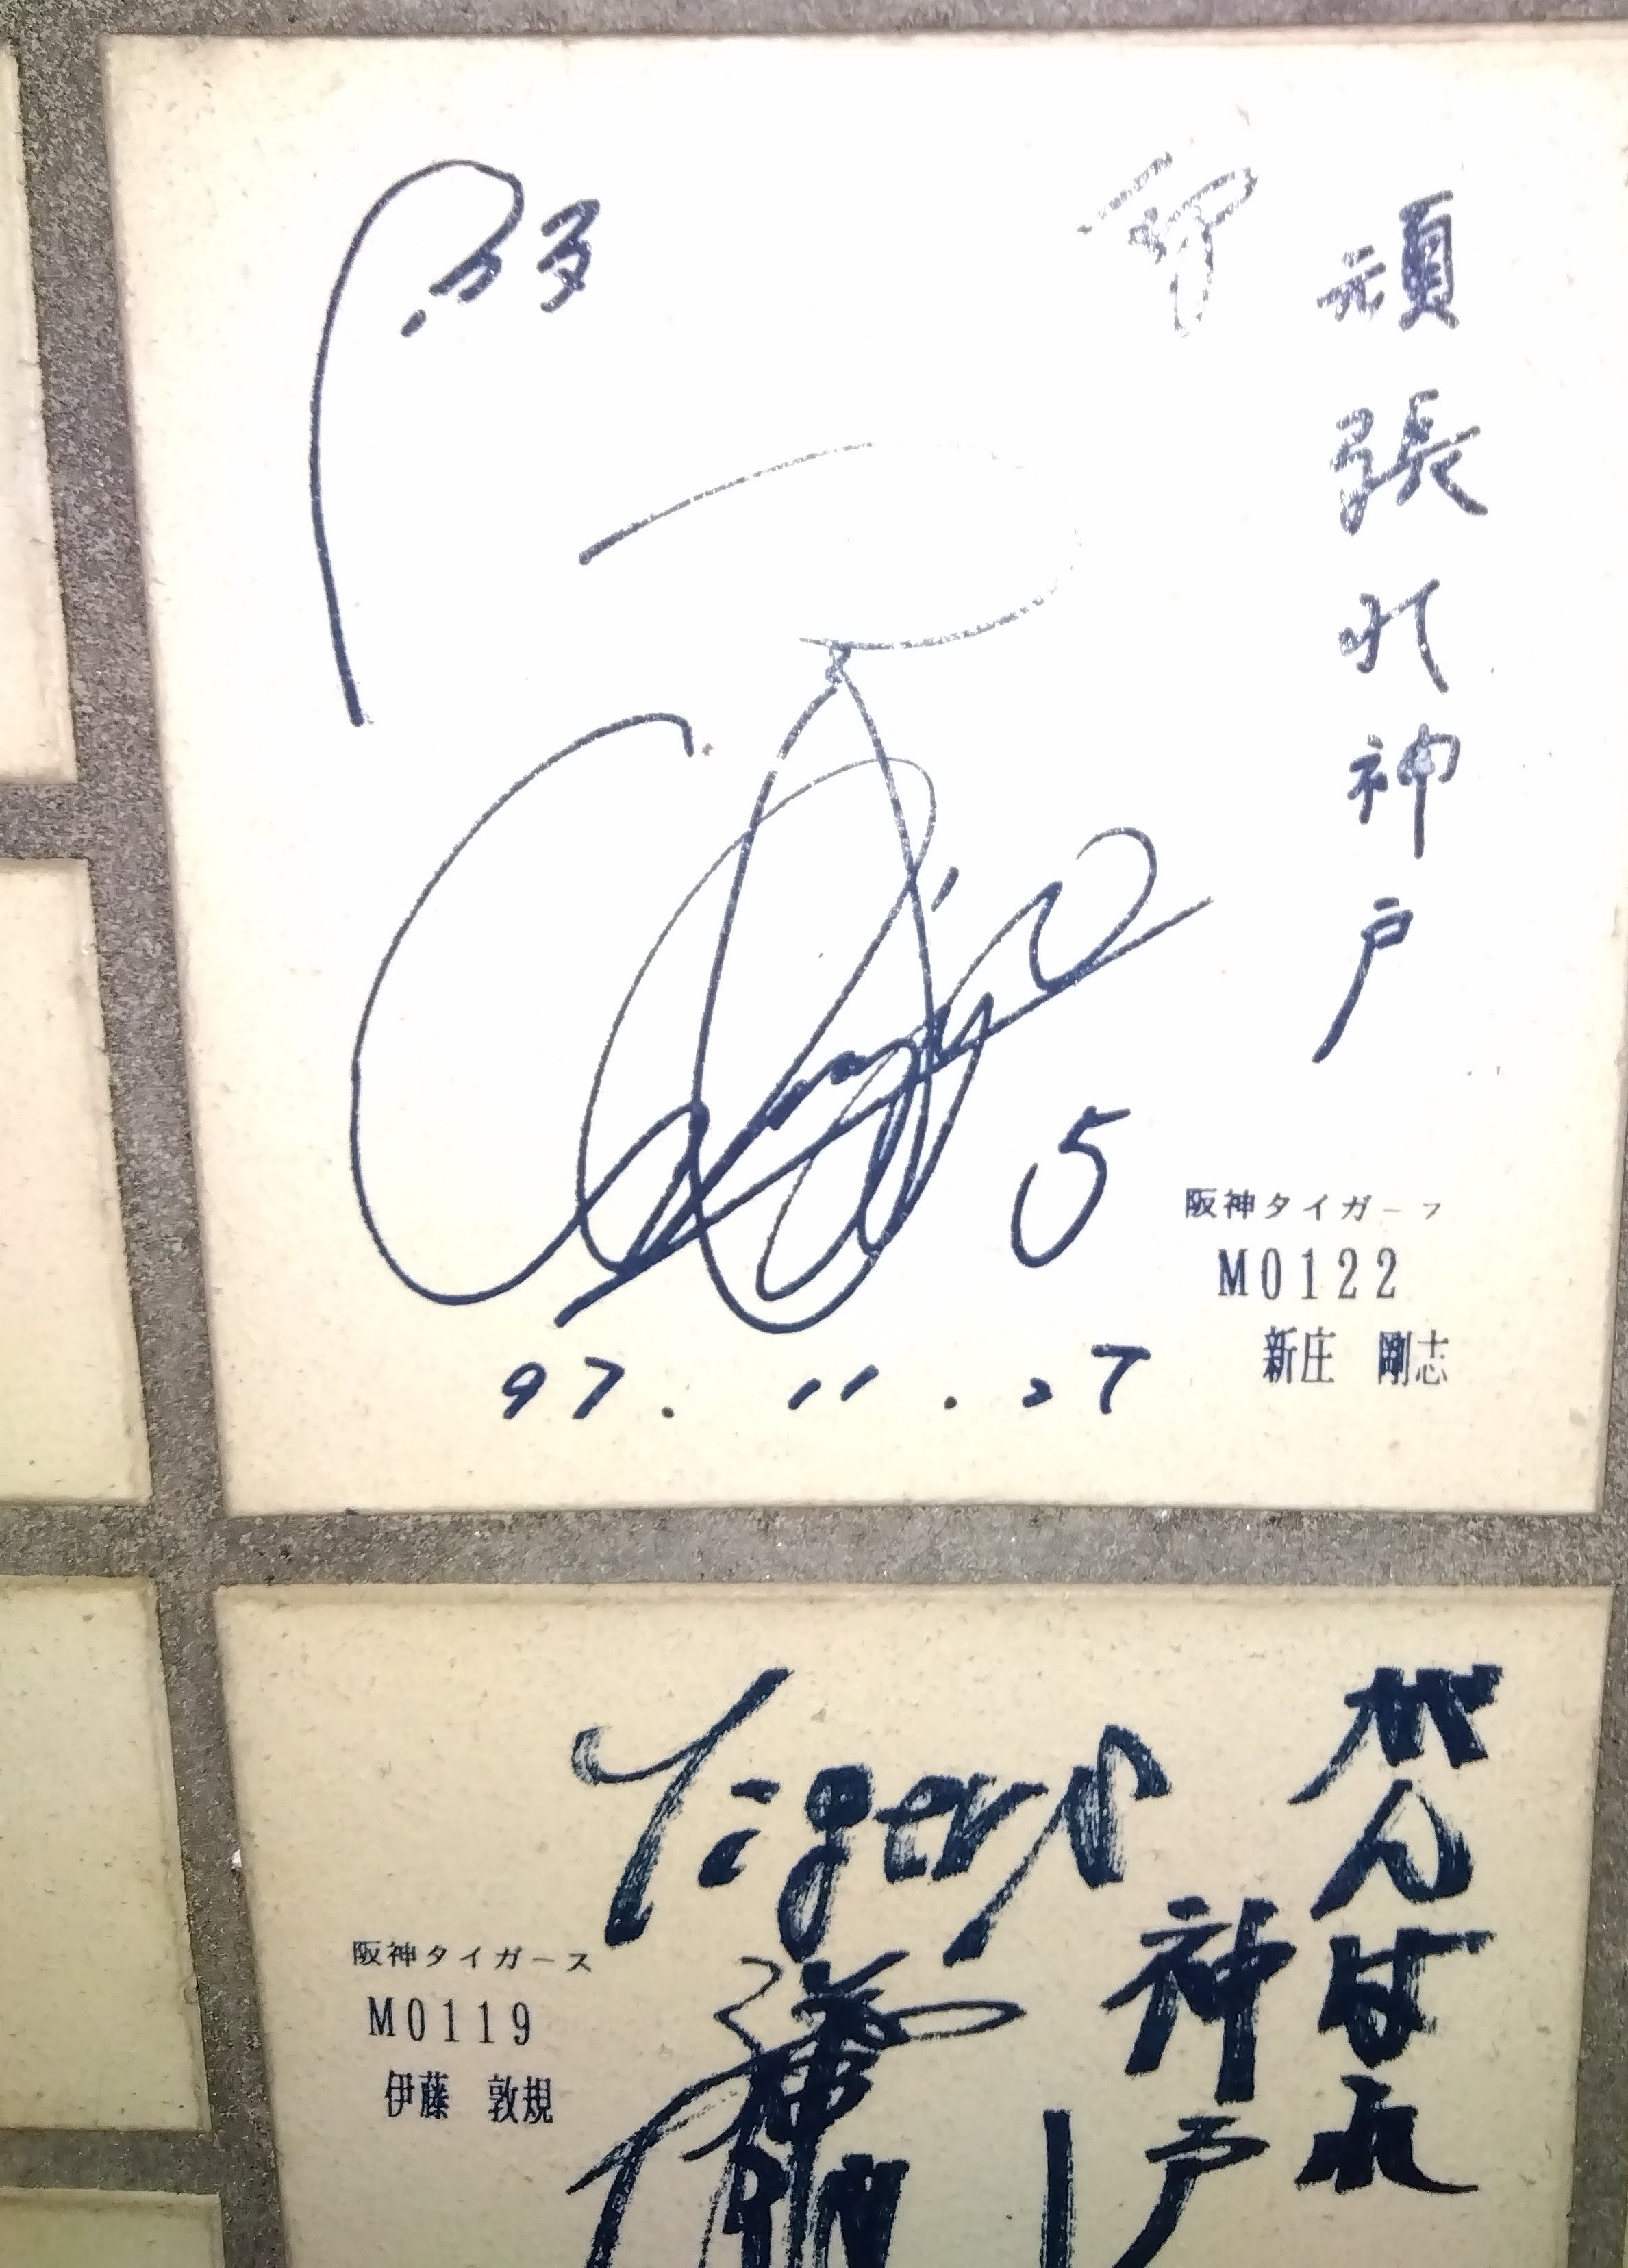 頑張れ神戸
5
阪神タイガース
M0122
新庄 剛志
97.11.27
がんばれ
神戸
Tigers
阪神タイガース
M0119
伊藤 敦規